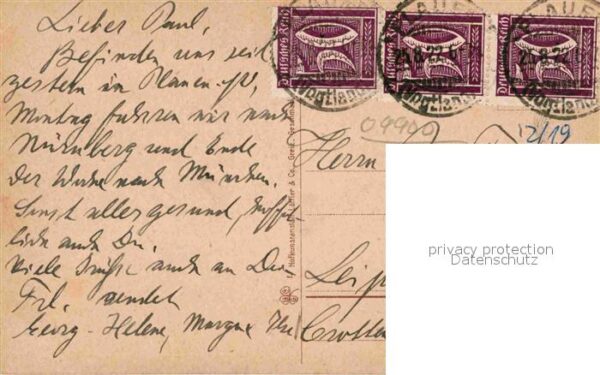 Lieber Paul,
Befinden uns seit
gestern in Plauen i/V,
Montag fahren wir nach
Nürnberg und Ende
der Woche nach München.
Sonst alles gesund, hoffent-
lich auch Du.
Viele Grüße auch an Dein
Frl. sendet
Georg - Helene,
Deutsches Reich
Deutsches Reich
Deutsches Reich
PLAUEN
25.8.22
(Vogtland)
09900
12/19
Herrn
Leip
Crotten
privacy protection
Datenschutz